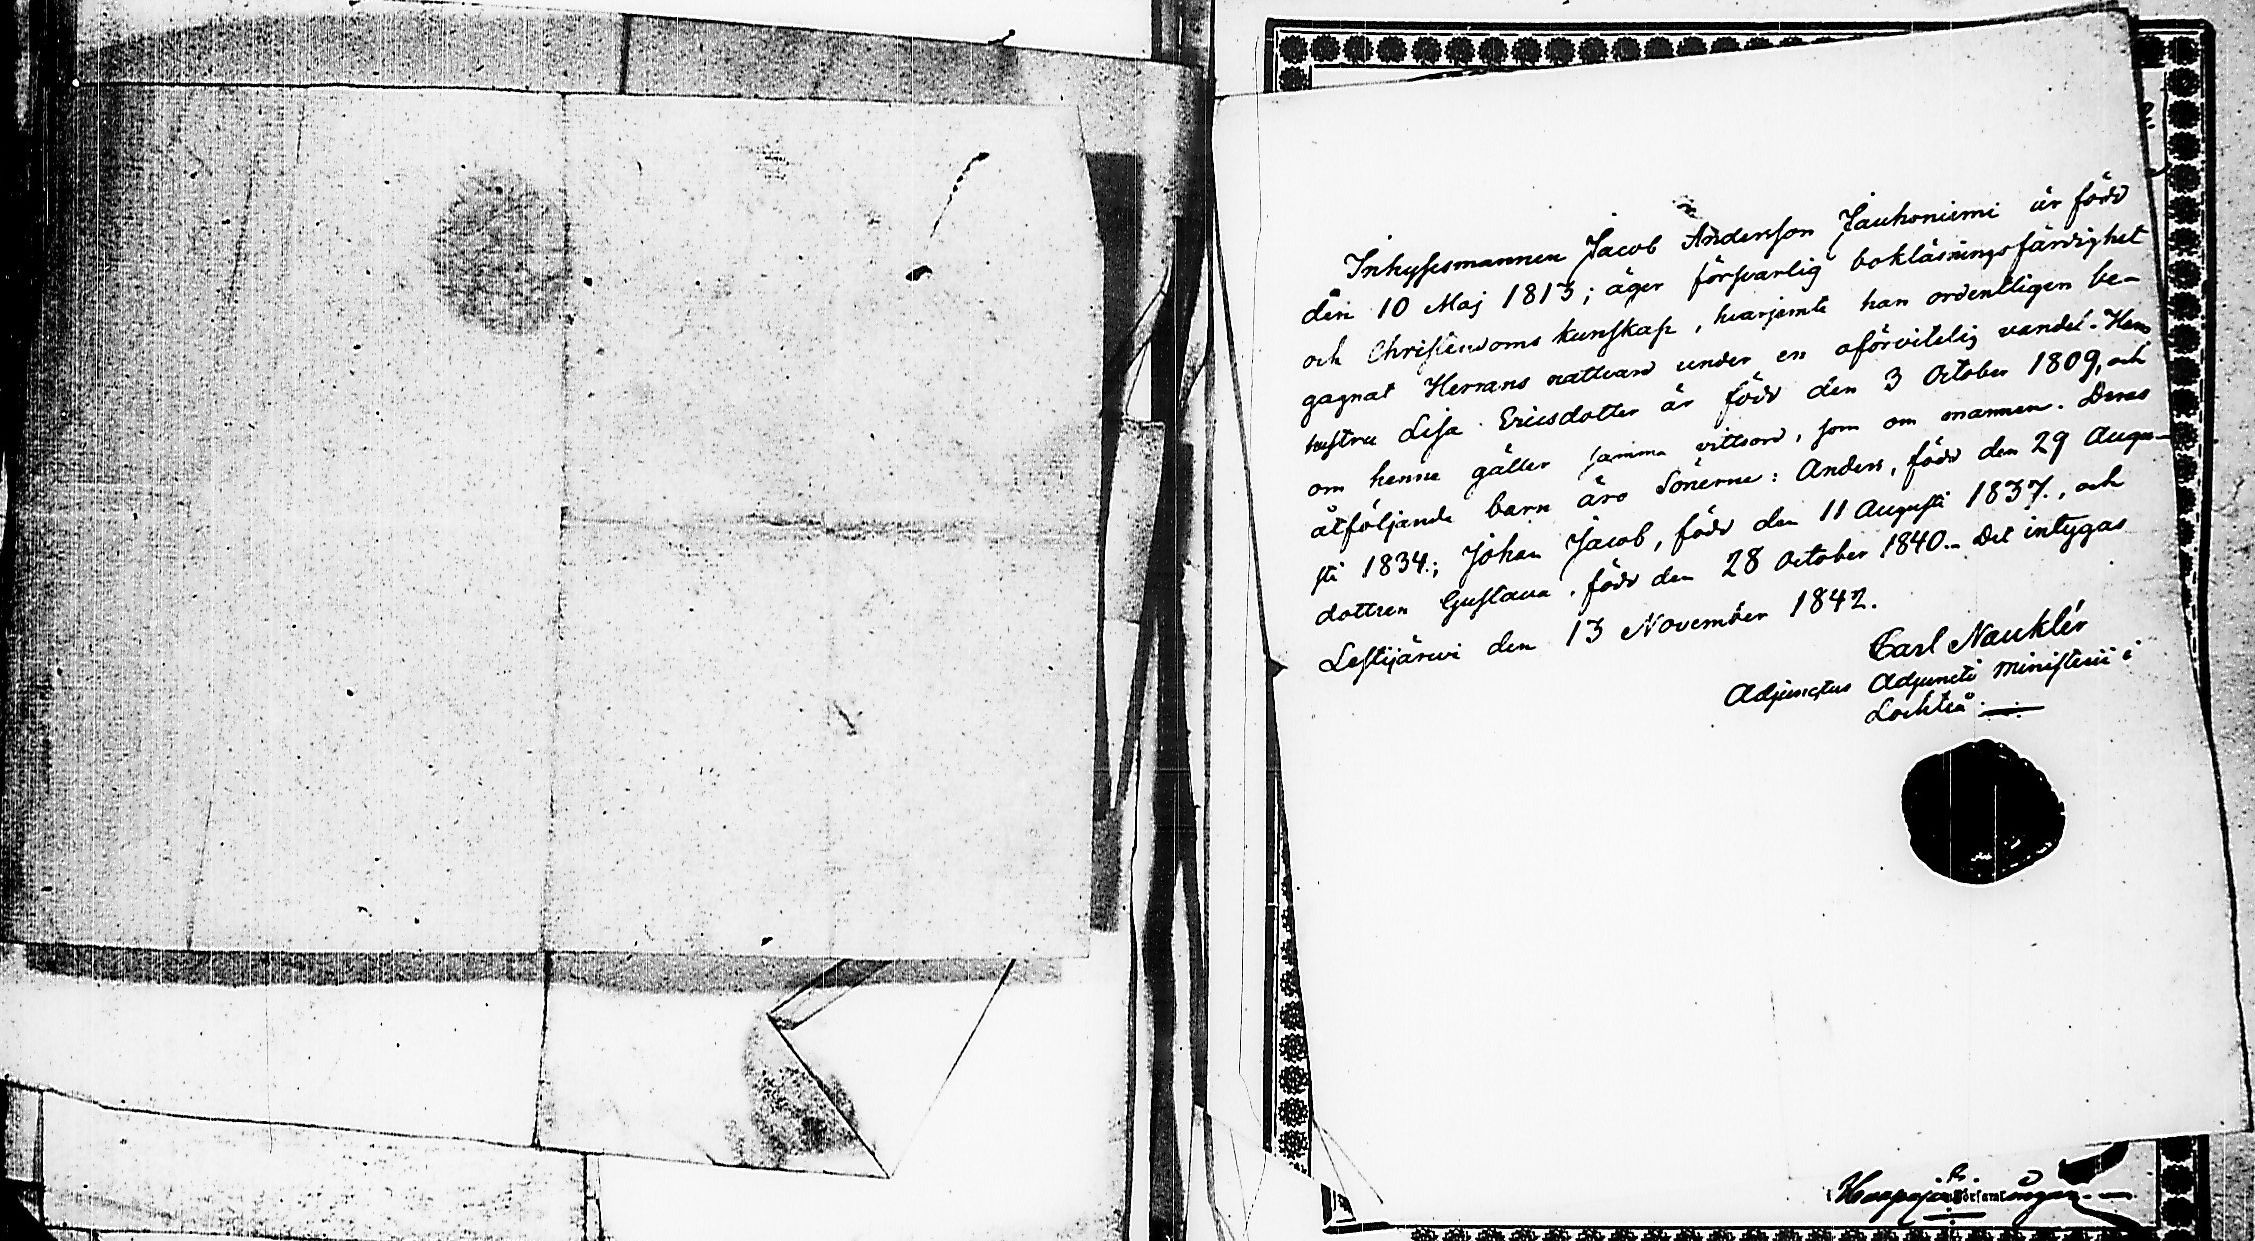 Inhysesmannen Jacob Andersson Jauhoniemi är född
den 10 Maj 1813; äger försvarlig bokläsningsfärdighet
och Christendoms kunskap, hvarjemte han ordentligen be-
gagnat Herrans nattvard under en oförvitelig vandel. Hans
hustru Lisa Ericsdotter är född den 3 October 1809, och
om henne gäller samma vittsord, som om mannen. Deras
åtföljande barn äro Sönerne: Anders, född den 29 Augu-
sti 1834; Johan Jacob, född den 11 Augusti 1837, och
dottren Gustava, född den 28 October 1840. Det intygas
Lestijärvi den 13 November 1842.
Carl Nauklér
Adjunctus Adjuncti Ministerii i
Lochteå.